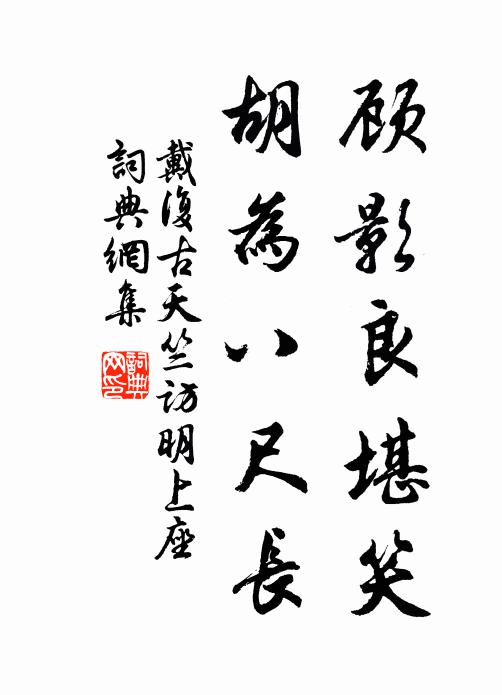 顾影良堪笑
胡為八尺長
戴復古天竺訪明上座
詞典網集
詞典網印